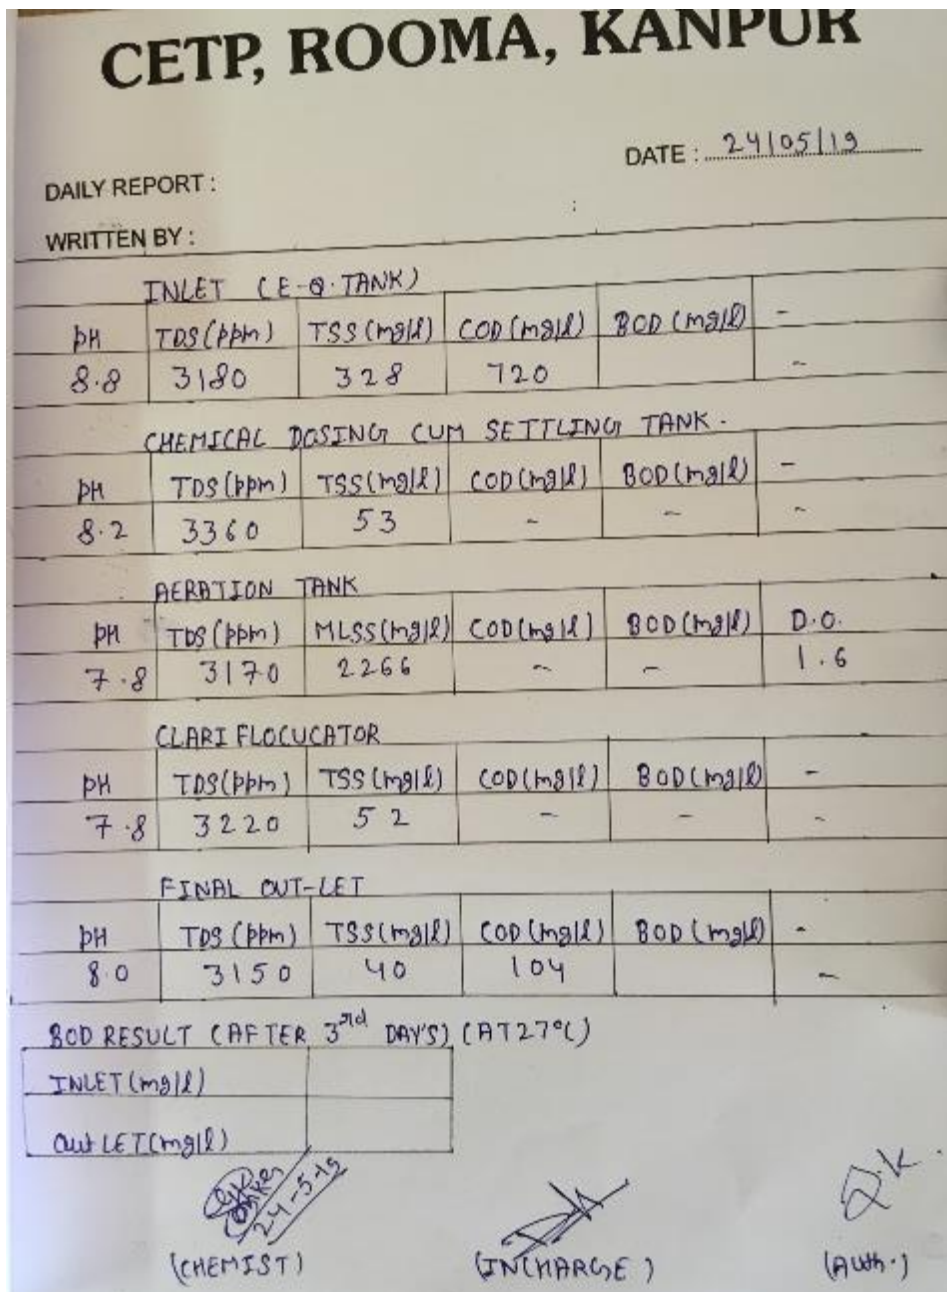 CETP, ROOMA, KANPUR
DATE : 24/05/19
DAILY REPORT :
WRITTEN BY :
INLET (E-Q.TANK)
pH TDS(ppm) TSS(mg/l) COD(mg/l) BOD(mg/l) -
8.8 3180 328 720 -
CHEMICAL DOSING CUM SETTLING TANK.
pH TDS(ppm) TSS(mg/l) COD(mg/l) BOD(mg/l) -
8.2 3360 53 - - -
AERATION TANK
pH TDS(ppm) MLSS(mg/l) COD(mg/l) BOD(mg/l) D.O.
7.8 3170 2266 - - 1.6
CLARI FLOCUCATOR
pH TDS(ppm) TSS(mg/l) COD(mg/l) BOD(mg/l) -
7.8 3220 52 - - -
FINAL OUT-LET
pH TDS(ppm) TSS(mg/l) COD(mg/l) BOD(mg/l) -
8.0 3150 40 104 -
BOD RESULT (AFTER 3rd DAY'S) (AT 27°C)
INLET(mg/l)
OutLET(mg/l)
24-5-19
(CHEMIST) (INCHARGE) (Auth.)